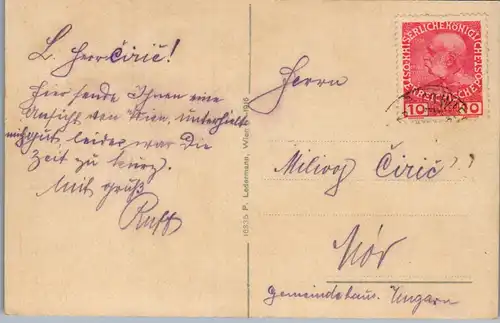 L. Herr Čirič!
Hier sende Ihnen eine
Ansicht von Wien, unterhielt
mich gut leider war die
Zeit zu kurz.
Mit Gruß
Ruff
10835 P. Ledermann, Wien
Herrn
Milivoj Čirič
Mór
Gemeindehaus. Ungarn
KAISERLICHE KÖNIGLICHE
10 10